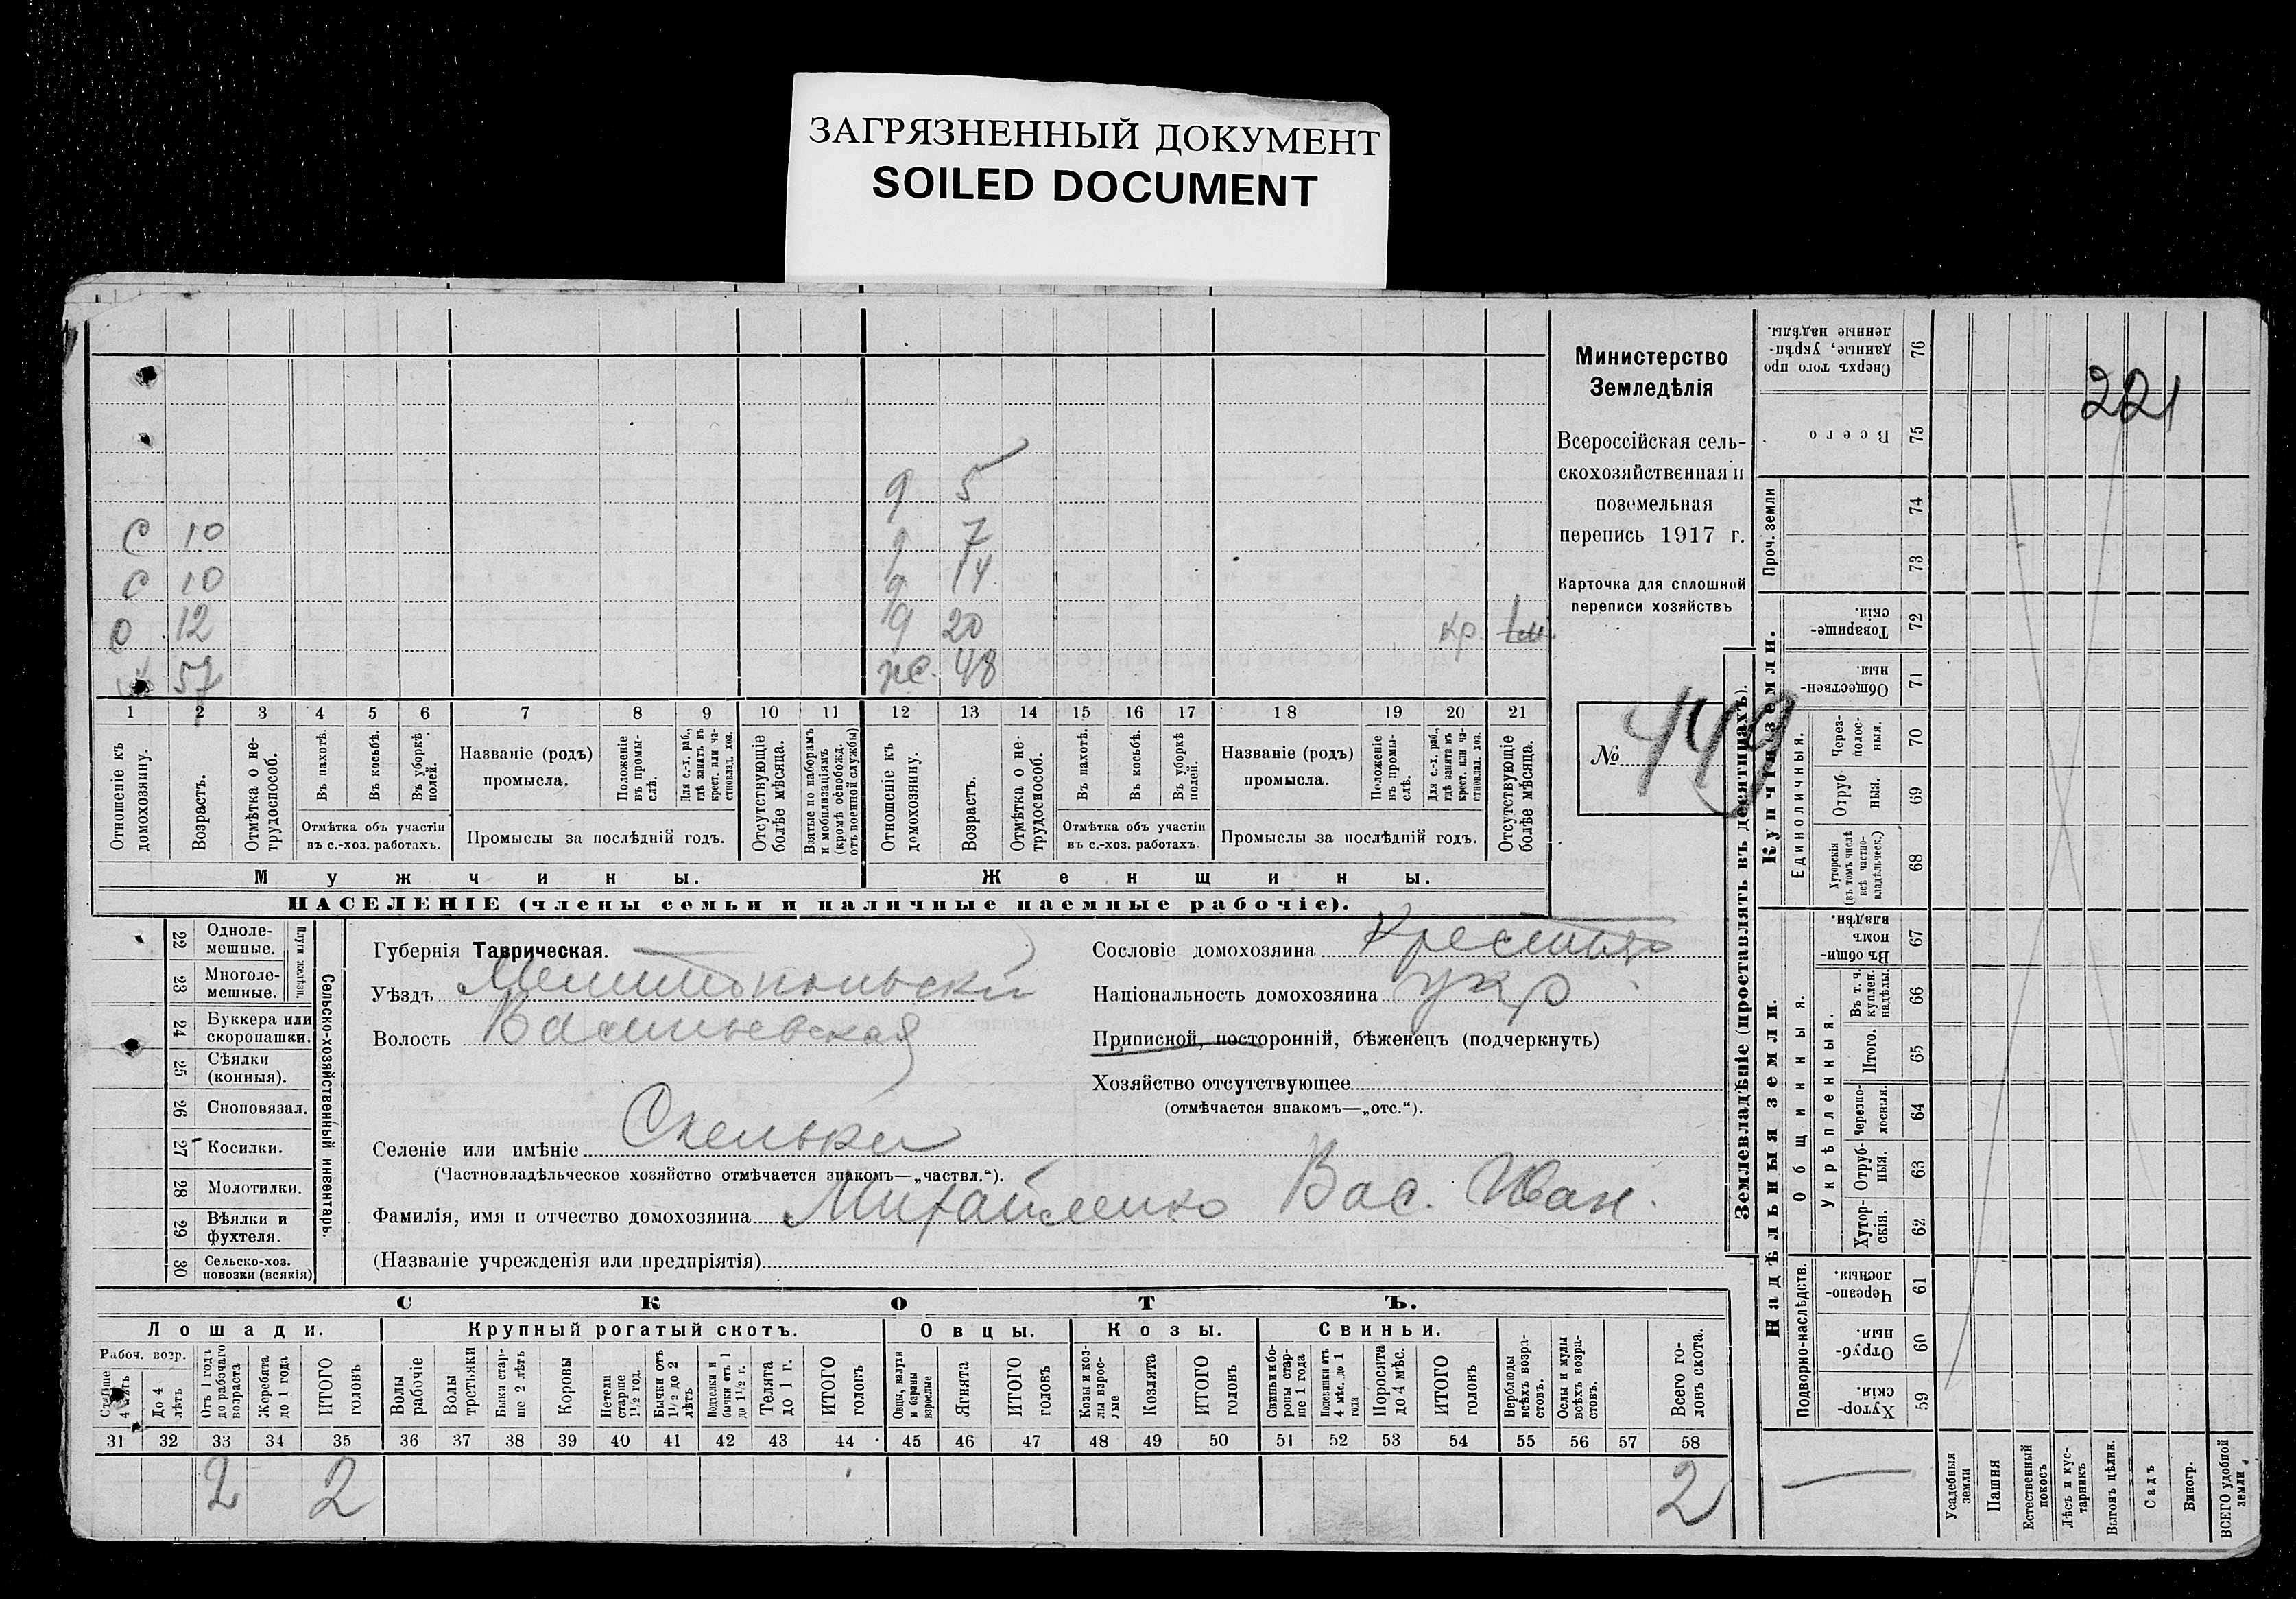 ЗАГРЯЗНЕННЫЙ ДОКУМЕНТ
SOILED DOCUMENT
221
Министерство
Земледѣлія
Всероссійская сель-
скохозяйственная и
поземельная
перепись 1917 г.
Карточка для сплошной
переписи хозяйствъ
№ 449
д 5
С 10 д 7
С 10 д 14
С 12 д 20 кр.
57 ж. 48
1 2 3 4 5 6 7 8 9 10 11 12 13 14 15 16 17 18 19 20 21
Отношеніе къ домохозяину.
Возрастъ.
Отмѣтка о не-трудоспособ.
Въ пахотѣ.
Въ косьбѣ.
Въ уборкѣ полей.
Отмѣтка объ участіи
въ с.-хоз. работахъ.
Названіе (родъ)
промысла.
Положеніе въ промы-слѣ.
Для с.-х. раб., гдѣ занятъ въ крест. или ча-стновлад. хоз.
Промыслы за послѣдній годъ.
Отсутствующіе болѣе мѣсяца.
Взятые по наборамъ и мобилизаціямъ (кромѣ освобожд. отъ военной службы)
Отношеніе къ домохозяину.
Возрастъ.
Отмѣтка о не-трудоспособ.
Въ пахотѣ.
Въ косьбѣ.
Въ уборкѣ полей.
Отмѣтка объ участіи
въ с.-хоз. работахъ.
Названіе (родъ)
промысла.
Положеніе въ промы-слѣ.
Для с.-х. раб., гдѣ занятъ въ крест. или ча-стновлад. хоз.
Промыслы за послѣдній годъ.
Отсутствующіе болѣе мѣсяца.
Мужчины. Женщины.
НАСЕЛЕНІЕ (члены семьи и наличные наемные рабочіе).
22 Однолемешные.
23 Многолемешные.
Плуги желѣзн.
24 Буккера или скоропашки.
25 Сѣялки (конныя).
26 Сноповязал.
27 Косилки.
28 Молотилки.
29 Вѣялки и фухтеля.
30 Сельско-хоз. повозки (всякія)
Сельско-хозяйственный инвентарь.
Губернія Таврическая.
Уѣздъ Мелитопольскій
Волость Васильевская
Селеніе или имѣніе Скельки
(Частновладѣльческое хозяйство отмѣчается знакомъ—„частвл.“).
Фамилія, имя и отчество домохозяина Михайленко Вас. Иван.
(Названіе учрежденія или предпріятія)
Сословіе домохозяина
Національность домохозяина укр
Приписной, посторонній, бѣженецъ (подчеркнуть)
Хозяйство отсутствующее
(отмѣчается знакомъ—„отс.“).
СКОТЪ.
Лошади. Крупный рогатый скотъ. Овцы. Козы. Свиньи.
Рабоч. возр.
Старше 4 лѣтъ
До 4 лѣтъ
Отъ 1 года до рабочаго возраста
Жеребята до 1 года
ИТОГО головъ
Волы рабочіе
Волы третьяки
Быки стар-ше 2 лѣтъ
Коровы
Нетели старше 1½ год.
Бычки отъ 1½ до 2 лѣтъ
Подтелки и бычки отъ 1 до 1½ г.
Телята до 1 г.
ИТОГО головъ
Овцы, валухи и бараны взрослые
Ягнята
ИТОГО головъ
Козы и коз-лы взрос-лые
Козлята
ИТОГО головъ
Свиньи и бо-ровы стар-ше 1 года
Подсвинки отъ 4 мѣс. до 1 года
Поросята до 4 мѣс.
ИТОГО головъ
Верблюды всѣхъ возра-стовъ.
Ослы и мулы всѣхъ возра-стовъ.
Всего го-ловъ скота.
31 32 33 34 35 36 37 38 39 40 41 42 43 44 45 46 47 48 49 50 51 52 53 54 55 56 57 58
2 2 2
Землевладѣніе (проставлять въ десятинахъ).
Купчія земли.
Надѣльныя земли.
Проч. земли
Единоличныя.
Общинныя.
Укрѣпленныя.
Подворно-наслѣдств.
Сверхъ того про-данные, укрѣп-ленные надѣлы. 76
Всего 75
74
73
Товарище-скія. 72
Обществен-ныя. 71
Через-полос-ныя. 70
Отруб-ныя. 69
Хуторскія (въ томъ числѣ всѣ частно-владѣльческ.) 68
Въ общин-номъ владѣн. 67
Въ т. ч. куплен. надѣлы. 66
Итого. 65
Черезпо-лосныя. 64
Отруб-ныя. 63
Хутор-скія. 62
Черезпо-лосныя. 61
Отруб-ныя. 60
Хутор-скія. 59
Усадебныя земли
Пашня
Естественный покосъ
Лѣсъ и кус-тарникъ
Выгонъ цѣлин.
Садъ
Виногр.
ВСЕГО удобной земли